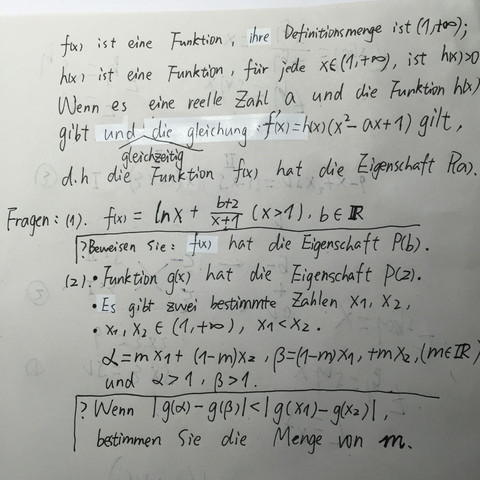 f(x) ist eine Funktion, ihre Definitionsmenge ist (1,+∞);
h(x) ist eine Funktion, für jede x∈(1,+∞), ist h(x)>0
Wenn es eine reelle Zahl a und die Funktion h(x)
gibt und die gleichung: f'(x)=h(x)(x²-ax+1) gilt,
gleichzeitig
d.h die Funktion f(x) hat die Eigenschaft P(a).
Fragen: (1). f(x) = lnx + (b+2)/(x+1) (x>1), b∈ℝ
? Beweisen Sie: f(x) hat die Eigenschaft P(b).
(2). • Funktion g(x) hat die Eigenschaft P(2).
• Es gibt zwei bestimmte Zahlen x1, x2,
• x1, x2 ∈ (1,+∞), x1<x2.
α=mx1+(1-m)x2, β=(1-m)x1,+mx2, (m∈ℝ)
und α>1, β>1.
? Wenn |g(α)-g(β)|<|g(x1)-g(x2)|,
bestimmen Sie die Menge von m.